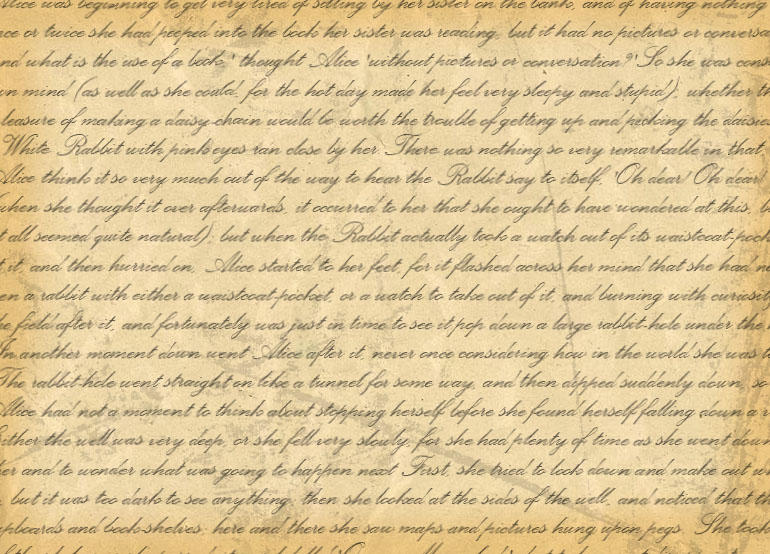 Alice was beginning to get very tired of sitting by her sister on the bank, and of having nothing
nce or twice she had peeped into the book her sister was reading, but it had no pictures or conversa
nd what is the use of a book,' thought Alice 'without pictures or conversation?' So she was cons
wn mind (as well as she could, for the hot day made her feel very sleepy and stupid), whether th
leasure of making a daisy-chain would be worth the trouble of getting up and picking the daisies
White Rabbit with pink eyes ran close by her. There was nothing so very remarkable in that
Alice think it so very much out of the way to hear the Rabbit say to itself, 'Oh dear! Oh dear!
when she thought it over afterwards, it occurred to her that she ought to have wondered at this, b
t all seemed quite natural); but when the Rabbit actually took a watch out of its waistcoat-pock
t it, and then hurried on, Alice started to her feet, for it flashed across her mind that she had n
en a rabbit with either a waistcoat-pocket, or a watch to take out of it, and burning with curiosit
he field after it, and fortunately was just in time to see it pop down a large rabbit-hole under the h
In another moment down went Alice after it, never once considering how in the world she was to
The rabbit-hole went straight on like a tunnel for some way, and then dipped suddenly down, so
Alice had not a moment to think about stopping herself before she found herself falling down a v
Either the well was very deep, or she fell very slowly, for she had plenty of time as she went down
her and to wonder what was going to happen next. First, she tried to look down and make out w
, but it was too dark to see anything; then she looked at the sides of the well, and noticed that th
upboards and book-shelves; here and there she saw maps and pictures hung upon pegs. She took